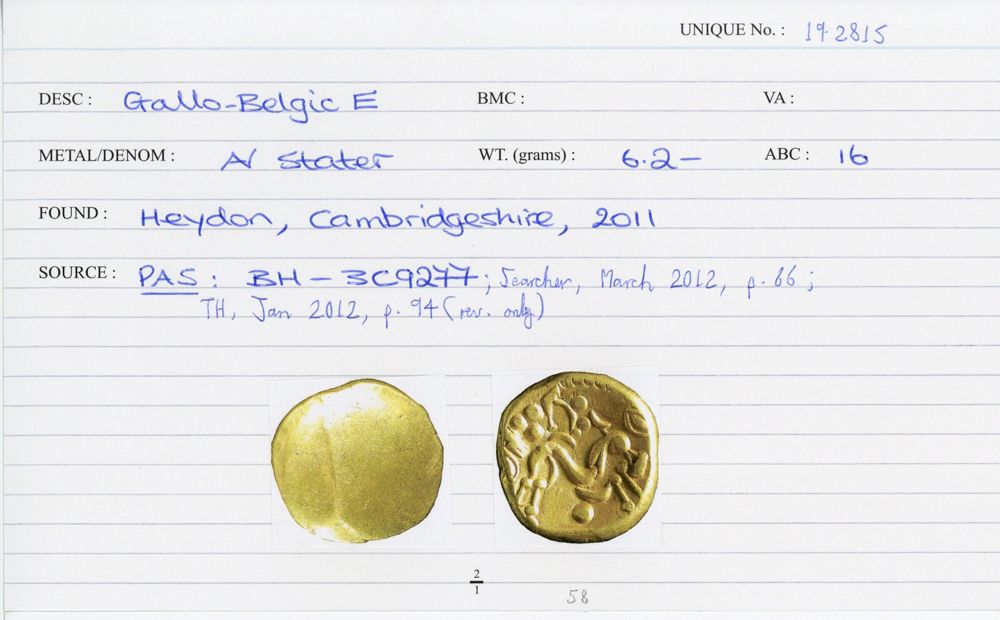 UNIQUE No. : 19.2815
DESC : Gallo-Belgic E BMC : VA :
METAL/DENOM : A/ Stater WT. (grams) : 6.2– ABC : 16
FOUND : Heydon, Cambridgeshire, 2011
SOURCE : PAS : BH – 3C9277; Searcher, March 2012, p. 66 ;
TH, Jan 2012, p. 94 (rev. only)
2
1
58